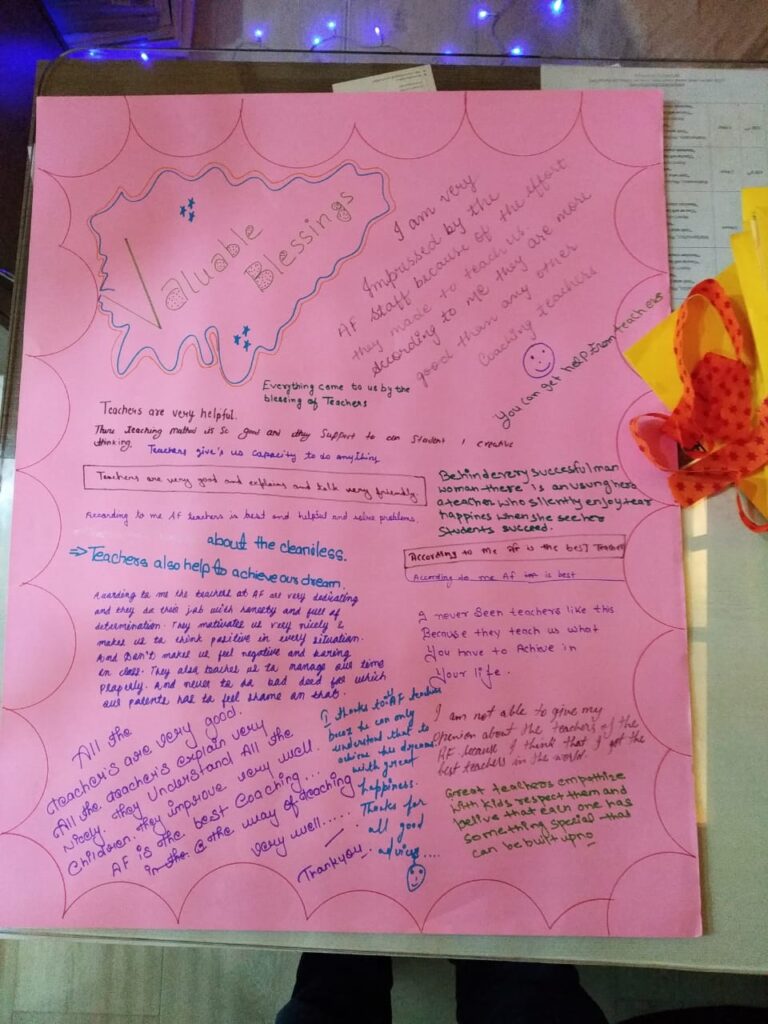 Valuable
Blessings
I am very
Impressed by the
AF Staff because of the effort
they made to teach us.
According to me they are more
good than any other
Coaching teachers
You can get help from teachers
Everything come to us by the
blessing of Teachers
Teachers are very helpful.
There teaching method is so good and they support to can student, creative
thinking.
Teachers give's us capacity to do anything
Teachers are very good and explains and talk very friendly.
According to me AF teachers is best and helpful and solve problems.
Behind every succesful man
woman there is an usung hero
a teacher who silently enjoy tear
happines when she see her
students succeed.
about the cleaniless.
⇒ Teachers also help to achieve our dream.
According to me AF is the best Teacher
According to me AF is best
According to me the teachers at AF are very dedicating
and they do their job with honesty and full of
determination. They motivates us very nicely &
makes us to think positive in every situation.
And Don't makes us feel negative and boring
in class. They also teaches us to manage our time
properly. And never to do bad deed for which
our parents has to feel shame on that.
I never Seen teachers like this
Because they teach us what
You have to Achieve in
Your life.
All the
teacher's are very good.
All the teacher's explain very
Nicely. they Understand All the
Children they improve very well.
AF is the best Coaching...
in the @ the way of teaching
very well.....
Thankyou.
I thanks to AF teacher
becoz he can only
understand that to
achieve the dreams
with great
happiness.
Thanks for
all good
advice....
I am not able to give my
openion about the teachers of the
AF because I think that I got the
best teachers in the world.
Great teachers empathize
with kids respect them and
belive that each one has
something special that
can be built upno